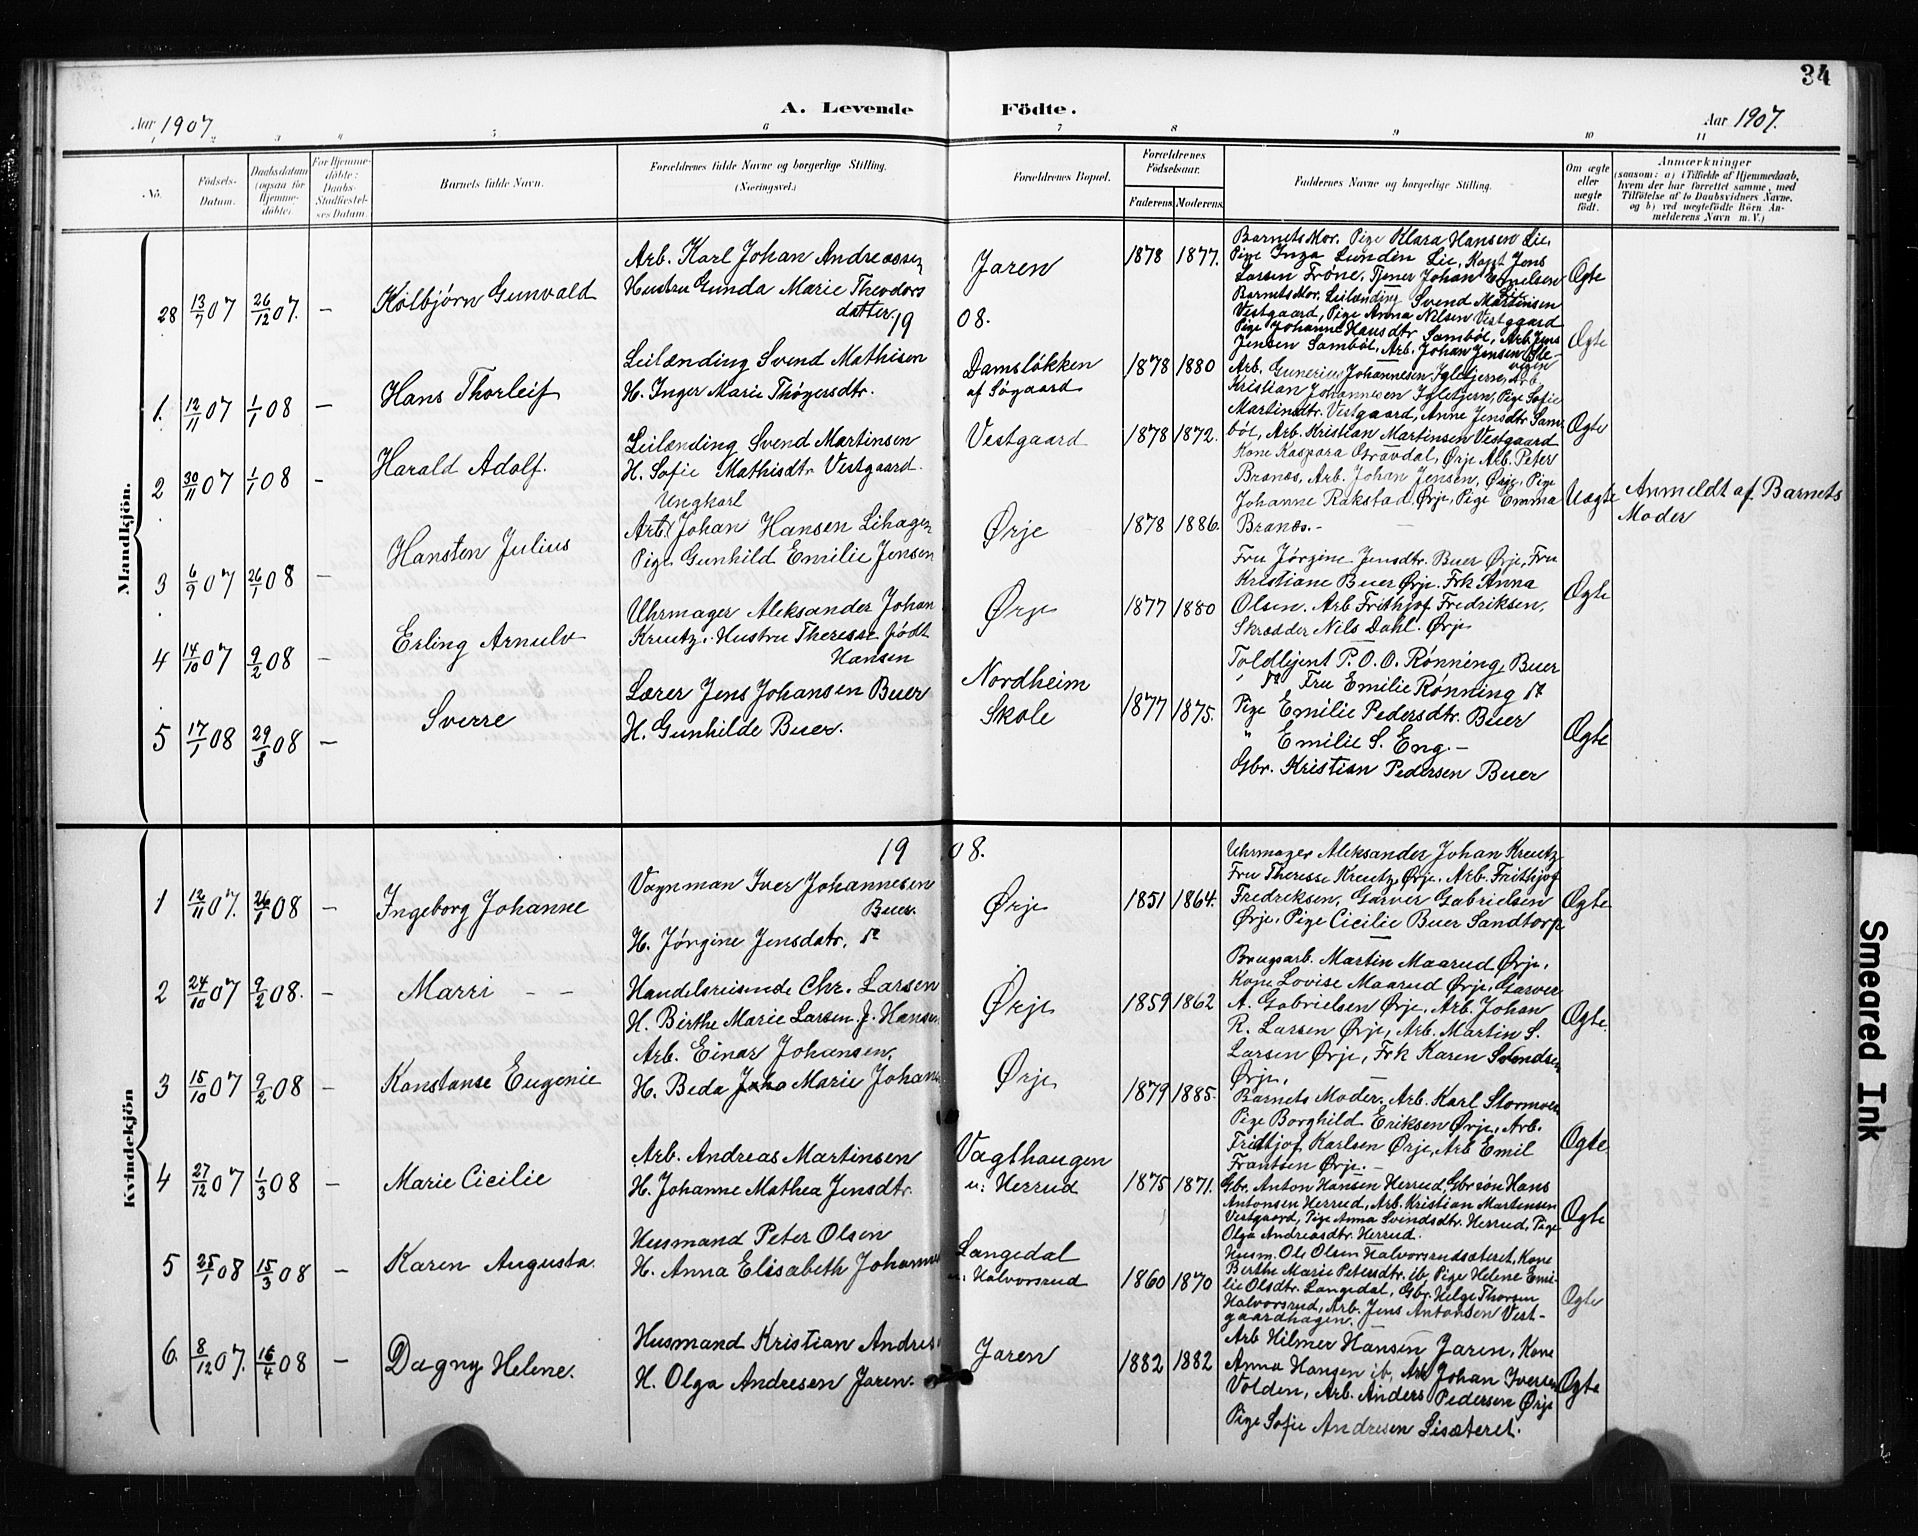 34
A. Levende Födte.
Aar 1907.
Aar 1907.
1 2 3 4 5 6 7 8 9 10 11
No.
Födsels-Datum.
Daabsdatum (ogsaa for Hjemme-döbte).
For Hjemme-döbte: Daabs-Stadfæstel-ses Datum.
Barnets fulde Navn.
Forældrenes fulde Navne og borgerlige Stilling. (Næringsvei.)
Forældrenes Bopæl.
Forældrenes Födselsaar.
Faderens. Moderens.
Faddernes Navne og borgerlige Stilling.
Om ægte eller uægte födt.
Anmærkninger
(saasom: a) i Tilfælde af Hjemmedaab, hvem der har forrettet samme, med Tilföielse af to Daabsvidners Navne, og b) ved uægtefödte Börn An-melderens Navn m. V.)
Mandkjön.
28 13/7 07 26/12 07. — Kolbjørn Gunvald
Arb. Karl Johan Andreassen
Hustru Gunda Marie Theodors
datter.
Jaren 1878 1877.
Barnets Mor, Pige Klara Hansen Lie,
Pige Inga Lundin Lie, Kont Jens
Larsen Frøne, Tjener Johan Engelsen
Ægte
19 08.
1. 12/11 07 1/1 08 — Hans Thorleif
Leilænding Svend Mathisen
H. Inger Marie Thøgersdtr.
Damsløkken
af Søgaard
1878 1880
Barnets Mor, Leilænding Svend Martinsen
Vestgaard, Pige Anna Nilsen Vestgaard
Pige Johanne Hansdtr Sambøl, Arb. Jens
Jensen Sambøl, Arb. Johan Jensen
Ægte
2 30/11 07 1/1 08 - Harald Adolf.
Leilænding Svend Martinsen
H. Sofie Mathisdtr Vestgaard.
Vestgaard 1878 1872.
Arb. Gunerius Johannesen Igletjern, Arb.
Kristian Johannesen Igletjern, Pige Sofie
Martinsdtr. Vestgaard, Anne Jensdtr Sam-
bøl, Arb. Kristian Martinsen Vestgaard
Ægte
3 6/9 07 26/1 08 — Hansten Julius
Ungkarl
Arb. Johan Hansen Lihagen
Pige Gunhild Emilie Jensen
Ørje 1878 1886.
Kone Kaspara Gravdal, Ørje Arb. Peter
Branæs, Arb. Johan Jensen, Ørje, Pige
Johanne Rakstad Ørje, Pige Emma
Branæs. -
Uægte
Anmeldt af Barnets
Moder
4 14/10 07 9/2 08 - Erling Arnulv
Uhrmager Aleksander Johan
Kreutz. Hustru Theresse født
Hansen
Ørje 1877 1880
Fru Jørgine Jensdtr. Buer Ørje, Fru
Kristiane Buer Ørje. Frk Anna
Olsen. Arb Frithjof Fredriksen,
Skrædder Nils Dahl. Ørje
Ægte
5 17/1 08 29/3 08 — Sverre
Lærer Jens Johansen Buer
H. Gunhilde Buer.
Nordheim
Skole
1877 1875.
Toldbjent P. O. O. Rønning, Buer
Fru Emilie Rønning
Pige Emilie Pedersdtr. Buer
" Emilie S. Eng. -
Gbr. Kristian Pedersen Buer
Ægte
Kvindekjön
19 08.
1 12/11 07. 26/1 08 — Ingeborg Johanne
Vognman Iver Johannesen
Buer.
H. Jørgine Jensdatr.
Ørje 1851 1864.
Uhrmager Aleksander Johan Kreutz
Fru Theresse Kreutz, Ørje, Arb. Frithjof
Fredriksen, Garver Gabrielsen
Ørje, Pige Cicilie Buer Sandtorp
Ægte
2 24/10 07 9/2 08. - Marri - -
Handelsreisende Chr. Larsen
H. Birthe Marie Larsen f. Hansen
Ørje 1859 1862
Brugsarb. Martin Maarud Ørje,
Kone Lovise Maarud Ørje, Garver
A. Gabrielsen Ørje, Arb. Johan
R. Larsen Ørje, Arb. Martin S.
Larsen Ørje, Frk Karen Svendsen
Ørje,
Ægte.
3 15/10 07 9/2 08 - Konstanse Eugenie
Arb. Einar Johansen,
H. Beda Marie Johan
Ørje 1879 1885.
Barnets Moder, Arb. Karl Stormoen
Pige Borghild Eriksen Ørje, Arb.
Fridtjof Karlsen Ørje, Arb Emil
Frantsen Ørje. -
Ægte
4 27/12 07 1/3 08 — Marie Cicilie
Arb. Andreas Martinsen
H. Johanne Mathea Jensdtr.
Vagthaugen
u: Herrud
1875 1871.
Gbr. Anton Hansen Herrud, Gbr søn Hans
Antonsen Herrud, Arb. Kristian Martinsen
Vestgaard, Pige Anna Svindsdtr. Herrud, Pige
Olga Andreasdtr. Herrud.
Ægte
5 25/1 08 15/3 08 — Karen Augusta.
Husmand Peter Olsen
H. Anna Elisabeth Johanne
Langedal
u: Halvorsrud
1860 1870
Husm. Ole Olsen Halvorsrudsæteret, Kone
Berthe Marie Petersdtr. ib, Pige Helene Emi-
lie Olsdtr. Langedal, Gbr. Helge Thorsen
Halvorsrud, Arb. Jens Antonsen Vest-
gaardhagen.
Ægte
6. 8/12 07. 16/4 08 — Dagny Helene.
Husmand Kristian Andres
H. Olga Andresen Jaren.
Jaren 1882 1882
Arb Hilmer Hansen Jaren, Kone
Anna Hangen ib, Arb Johan Iversen
Volden, Arb. Anders Pedersen Ørje
Pige Sofie Andresen Lisæteret.
Ægte
Smeared Ink